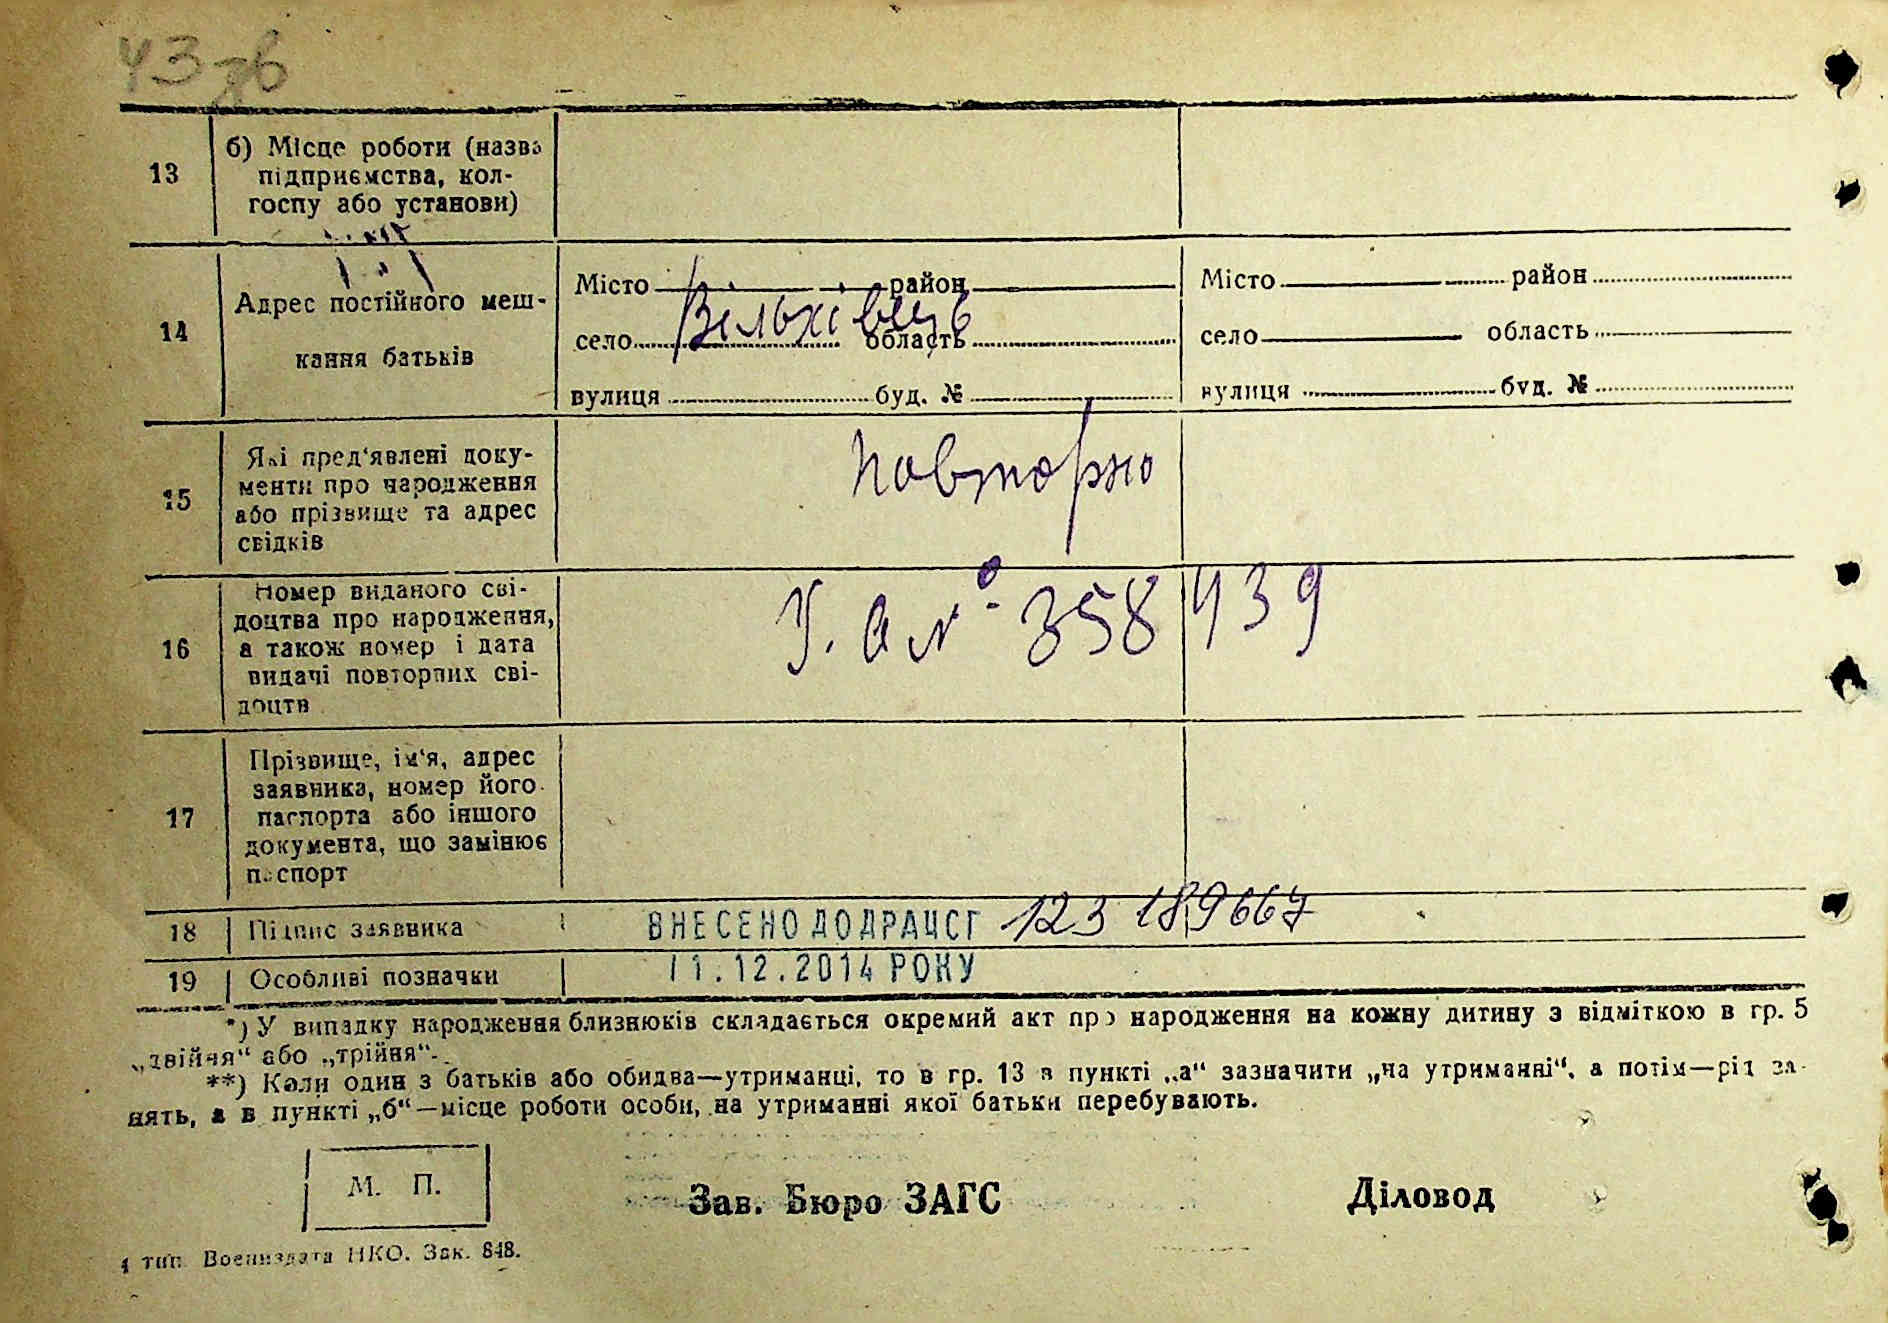 43 зв
13
б) Місце роботи (назва
підприємства, кол-
госпу або установи)
14
Адрес постійного меш-
кання батьків
Місто район
село Вільхівець область
вулиця буд. №
Місто район
село область
вулиця буд. №
15
Які пред'явлені доку-
менти про народження
або прізвище та адрес
свідків
повторно
16
Номер виданого сві-
доцтва про народження,
а також номер і дата
видачі повторних сві-
доцтв
У. а № 358439
17
Прізвище, ім'я, адрес
заявника, номер його
паспорта або іншого
документа, що замінює
паспорт
18
Підпис заявника
ВНЕСЕНО ДО ДРАЦСГ 123 189667
19
Особливі позначки
11.12.2014 РОКУ
*) У випадку народження близнюків складається окремий акт про народження на кожну дитину з відміткою в гр. 5
„двійня“ або „трійня“.
**) Коли один з батьків або обидва—утриманці, то в гр. 13 в пункті „а“ зазначити „на утриманні“, а потім—рід за-
нять, а в пункті „б“—місце роботи особи, на утриманні якої батьки перебувають.
М. П.
Зав. Бюро ЗАГС
Діловод
1 тип. Воениздата НКО. Зак. 848.